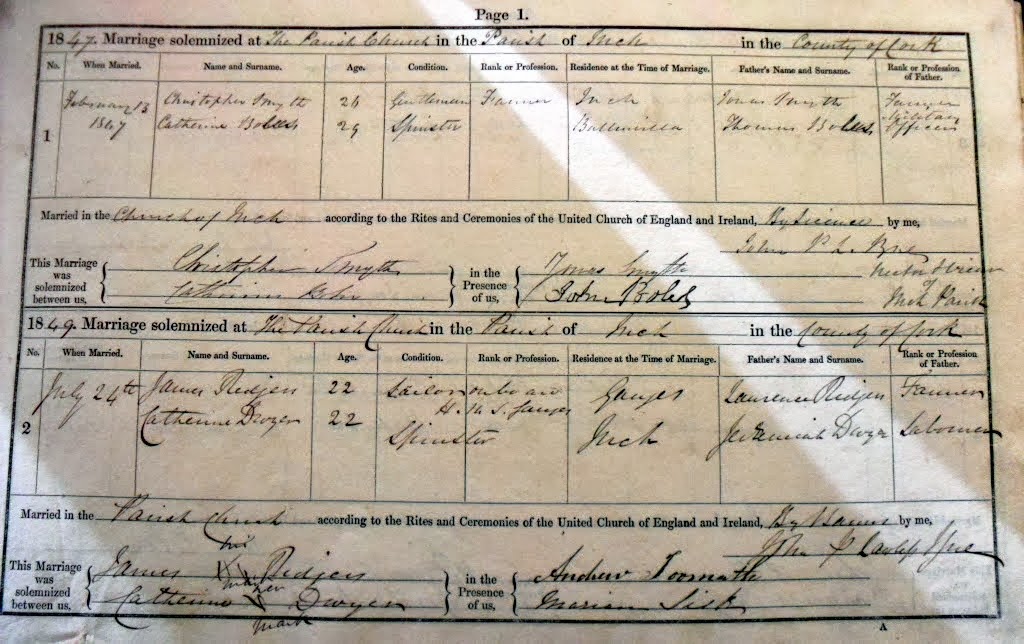 Page 1.
1847. Marriage solemnized at The Parish Church in the Parish of Inch in the County of Cork
No. When Married. Name and Surname. Age. Condition. Rank or Profession. Residence at the Time of Marriage. Father's Name and Surname. Rank or Profession of Father.
1 February 13 Christopher Smyth 26 Gentleman Farmer Inch Jonas Smyth Farmer
1847 Catherine Boles 29 Spinster Thomas Boles Military Officer
Married in the Church of Inch according to the Rites and Ceremonies of the United Church of England and Ireland, By Licence by me,
John P. L.
This Marriage was solemnized between us, Christopher Smyth in the Presence of us, Jonas Smyth
Catherine John Boles
Inch Parish
1849. Marriage solemnized at The Parish Church in the Parish of Inch in the County of Cork
No. When Married. Name and Surname. Age. Condition. Rank or Profession. Residence at the Time of Marriage. Father's Name and Surname. Rank or Profession of Father.
2 July 24th James Ridjen 22 Sailor on board Ganges Lawrence Ridjen Farmer
H.M.S. Ganges
Catherine Dwyer 22 Spinster Inch Jeremiah Dwyer Laborer
Married in the Parish Church according to the Rites and Ceremonies of the United Church of England and Ireland, By Banns by me,
John P
his
This Marriage was solemnized between us, James X Ridjen in the Presence of us, Andrew
her
Catherine X Dwyer Marian Sisk
mark
A